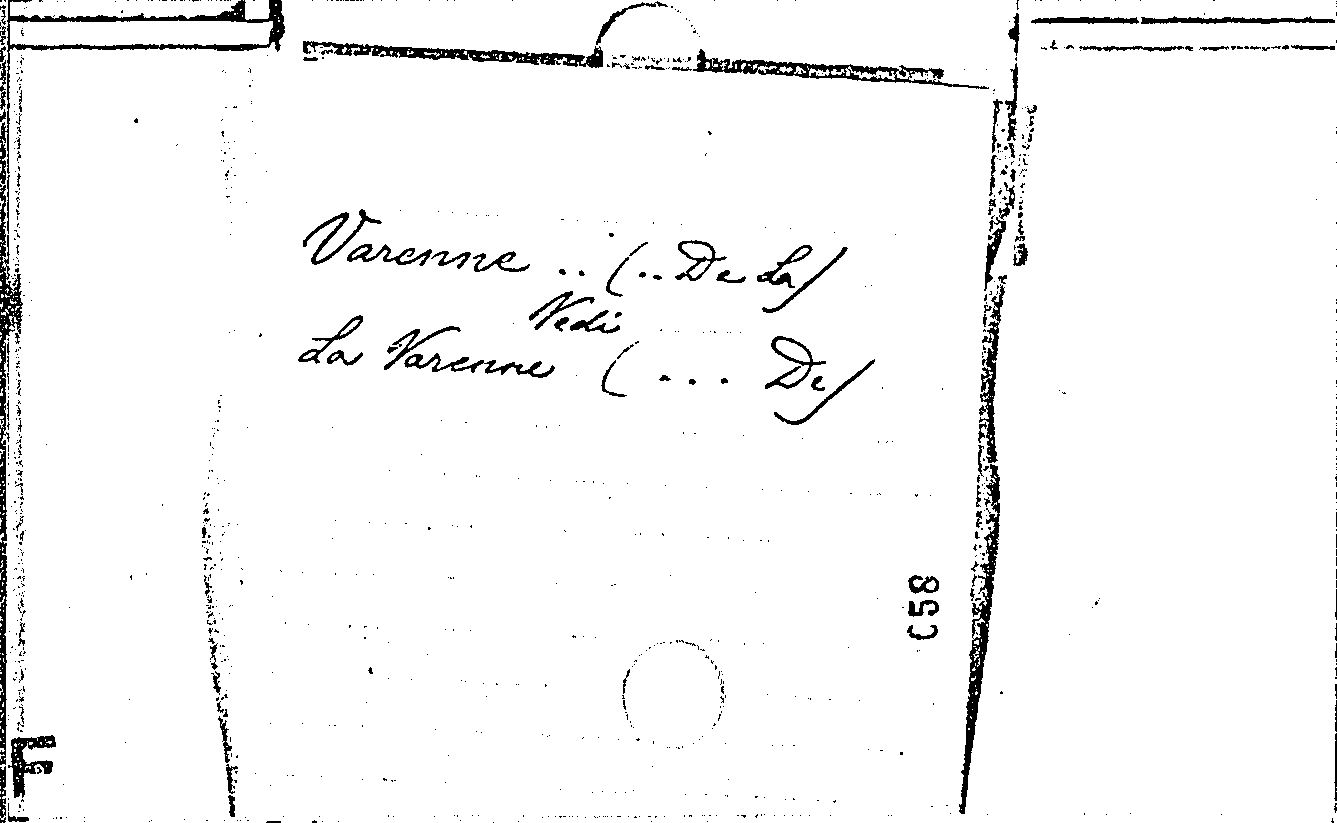 Varenne .. (.. De La)
Vedi
La Varenne (... De)
C58